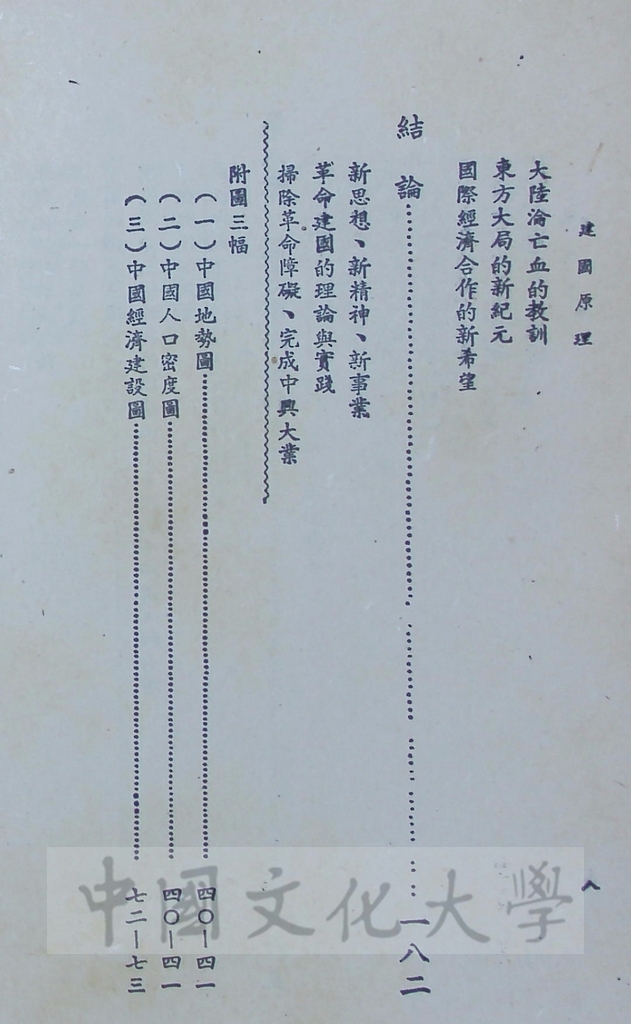 建國原理
八
大陸淪亡血的教訓
東方大局的新紀元
國際經濟合作的新希望
結論……一八二
新思想、新精神、新事業
革命建國的理論與實踐
掃除革命障礙、完成中興大業
附圖三幅
(一)中國地勢圖……四〇—四一
(二)中國人口密度圖……四〇—四一
(三)中國經濟建設圖……七二—七三
中國文化大學